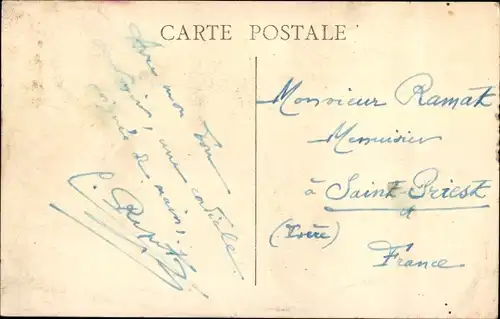 CARTE POSTALE
Avec mon bon
Souvenir, une cordiale
poignée de mains.
Monsieur Ramat
Menuisier
à Saint-Priest
(Isère)
France